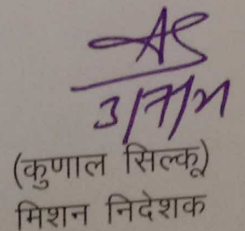 3/7/21
(कुणाल सिल्कू)
मिशन निदेशक